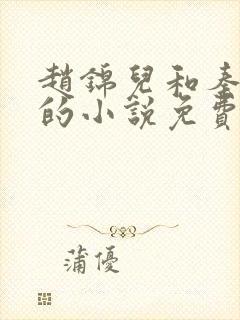 趙錦兒和秦
的小說免費
蒲優